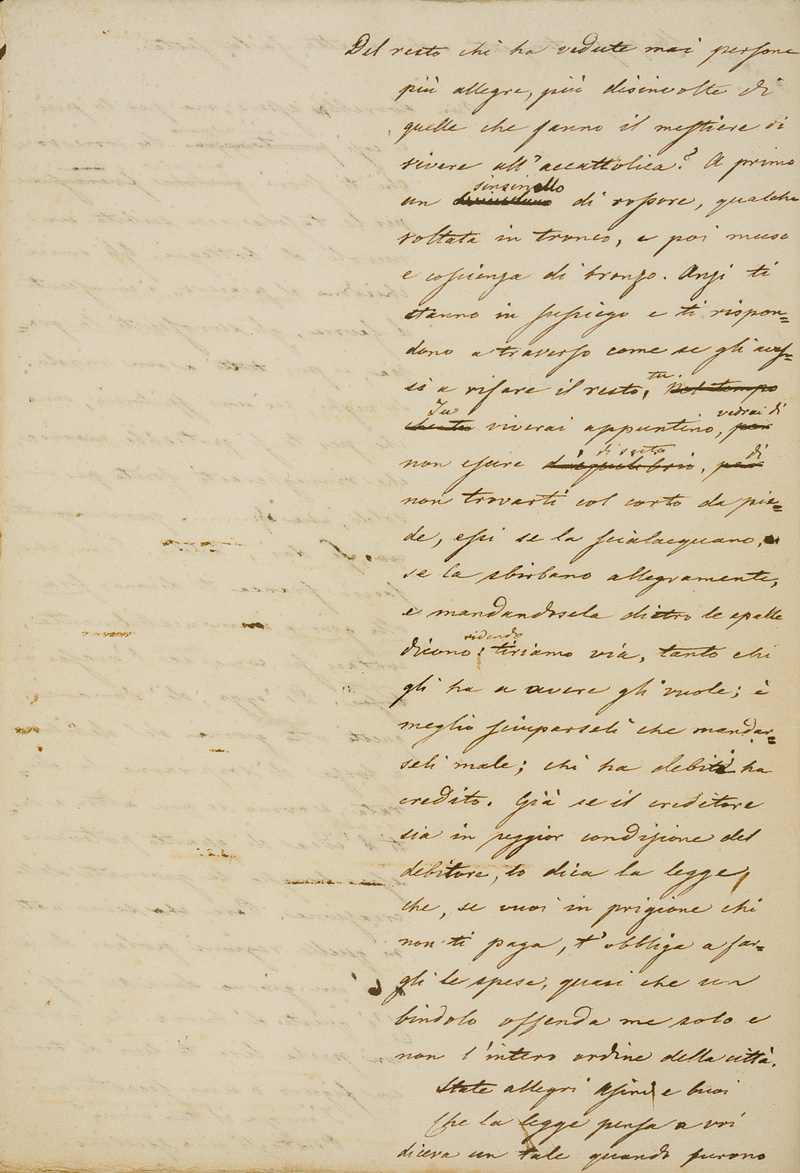 Del resto chi ha vedute mai persone
più allegre, più disinvolte di
quelle che fanno il mestiere di
vivere all'accattolica? A primo
sinsinello
un di rossore, qualche
voltata in tronco, e poi muso
e coscienza di bronzo. Anzi ti
stanno in sussiego e ti rispon=
dono a traverso come se gli aves=
tu
si a rifare il resto, Nel tempo
Tu vedrai di
che tu viverai appuntino, per
di sesto di
non escire d'equilibrio, per
non trovarti col corto da pie=
de, essi se la scialacquano,
se la sbirbano allegramente,
e mandandosela dietro le spalle
ridendo
dicono: tiriamo via, tanto chi
gli ha a avere gli vuole; è
meglio sciuparseli che mandar=
seli male; chi ha debiti ha
credito. Già se il creditore
sia in peggior condizione del
debitore, lo dica la legge,
che, se vuoi in prigione chi
non ti paga, t'obbliga a far=
gli le spese, quasi che un
bindolo offenda me solo e
non l'intero ordine della città.
State allegri asini e buoi
Che la legge pensa a voi
diceva un tale quando furono